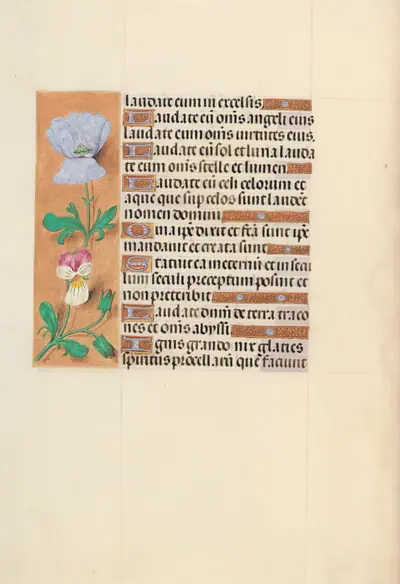 laudate eum in excelsis
Laudate eū om̄s angeli eius
laudate eum om̄s uirtutes eius.
Laudate eū sol et luna lauda
te eum om̄s stelle et lumen
Laudate eū celi celorum et
aque que sup celos sunt laudēt
nomen domini
Quia ip̄e dixit et fc̄a sunt ip̄e
mandauit et creata sunt
Statuit ea in eternū et in secu
lum seculi preceptum posuit et
non preteribit
Laudate dn̄m de terra draco
nes et om̄s abyssi
Ignis grando nix glacies
spiritus procellarū que faciunt